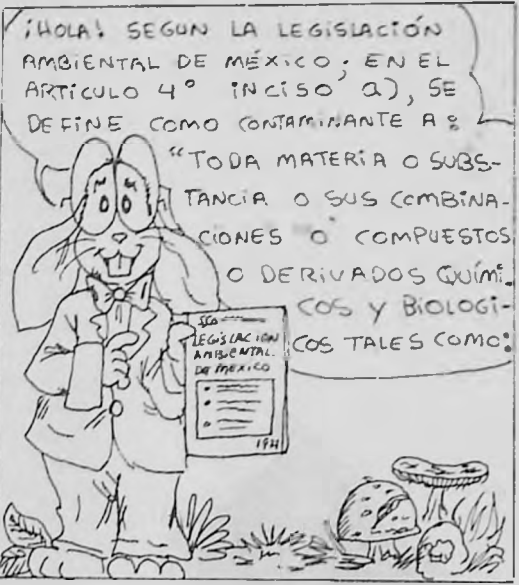 ¡HOLA! SEGUN LA LEGISLACIÓN
AMBIENTAL DE MÉXICO; EN EL
ARTÍCULO 4° INCISO a), SE
DEFINE COMO CONTAMINANTE A:
"TODA MATERIA O SUBS-
TANCIA O SUS COMBINA-
CIONES O COMPUESTOS
O DERIVADOS QUÍMI-
COS Y BIOLOGI-
COS TALES COMO:
LEGISLACION
AMBIENTAL
DE MEXICO